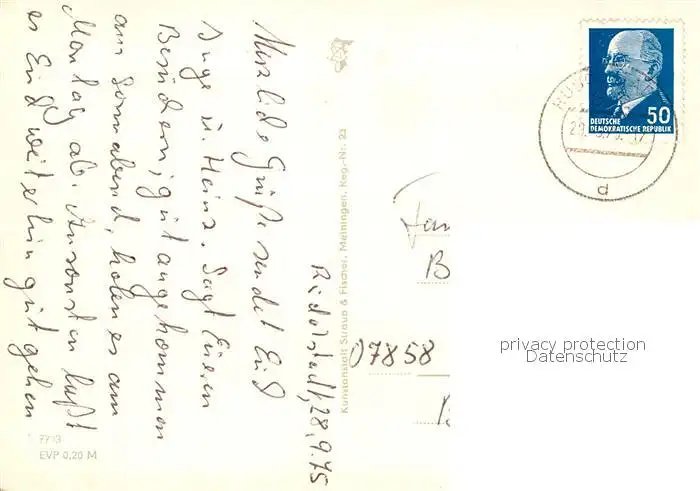 Rudolstadt, 28.9.75
Herzliche Grüße sendet Euch
Inge u. Heinz. Sagt Euren
Brüdern, gut angekommen
am Sonnabend, holen es am
Montag ab. Ansonsten laßt
es Euch weiterhin gut gehen
Kunstanstalt Straub & Fischer, Meiningen, Reg.-Nr. 23
7713
EVP 0,20 M
50
DEUTSCHE
DEMOKRATISCHE REPUBLIK
d
Fam
B
07858
privacy protection
Datenschutz